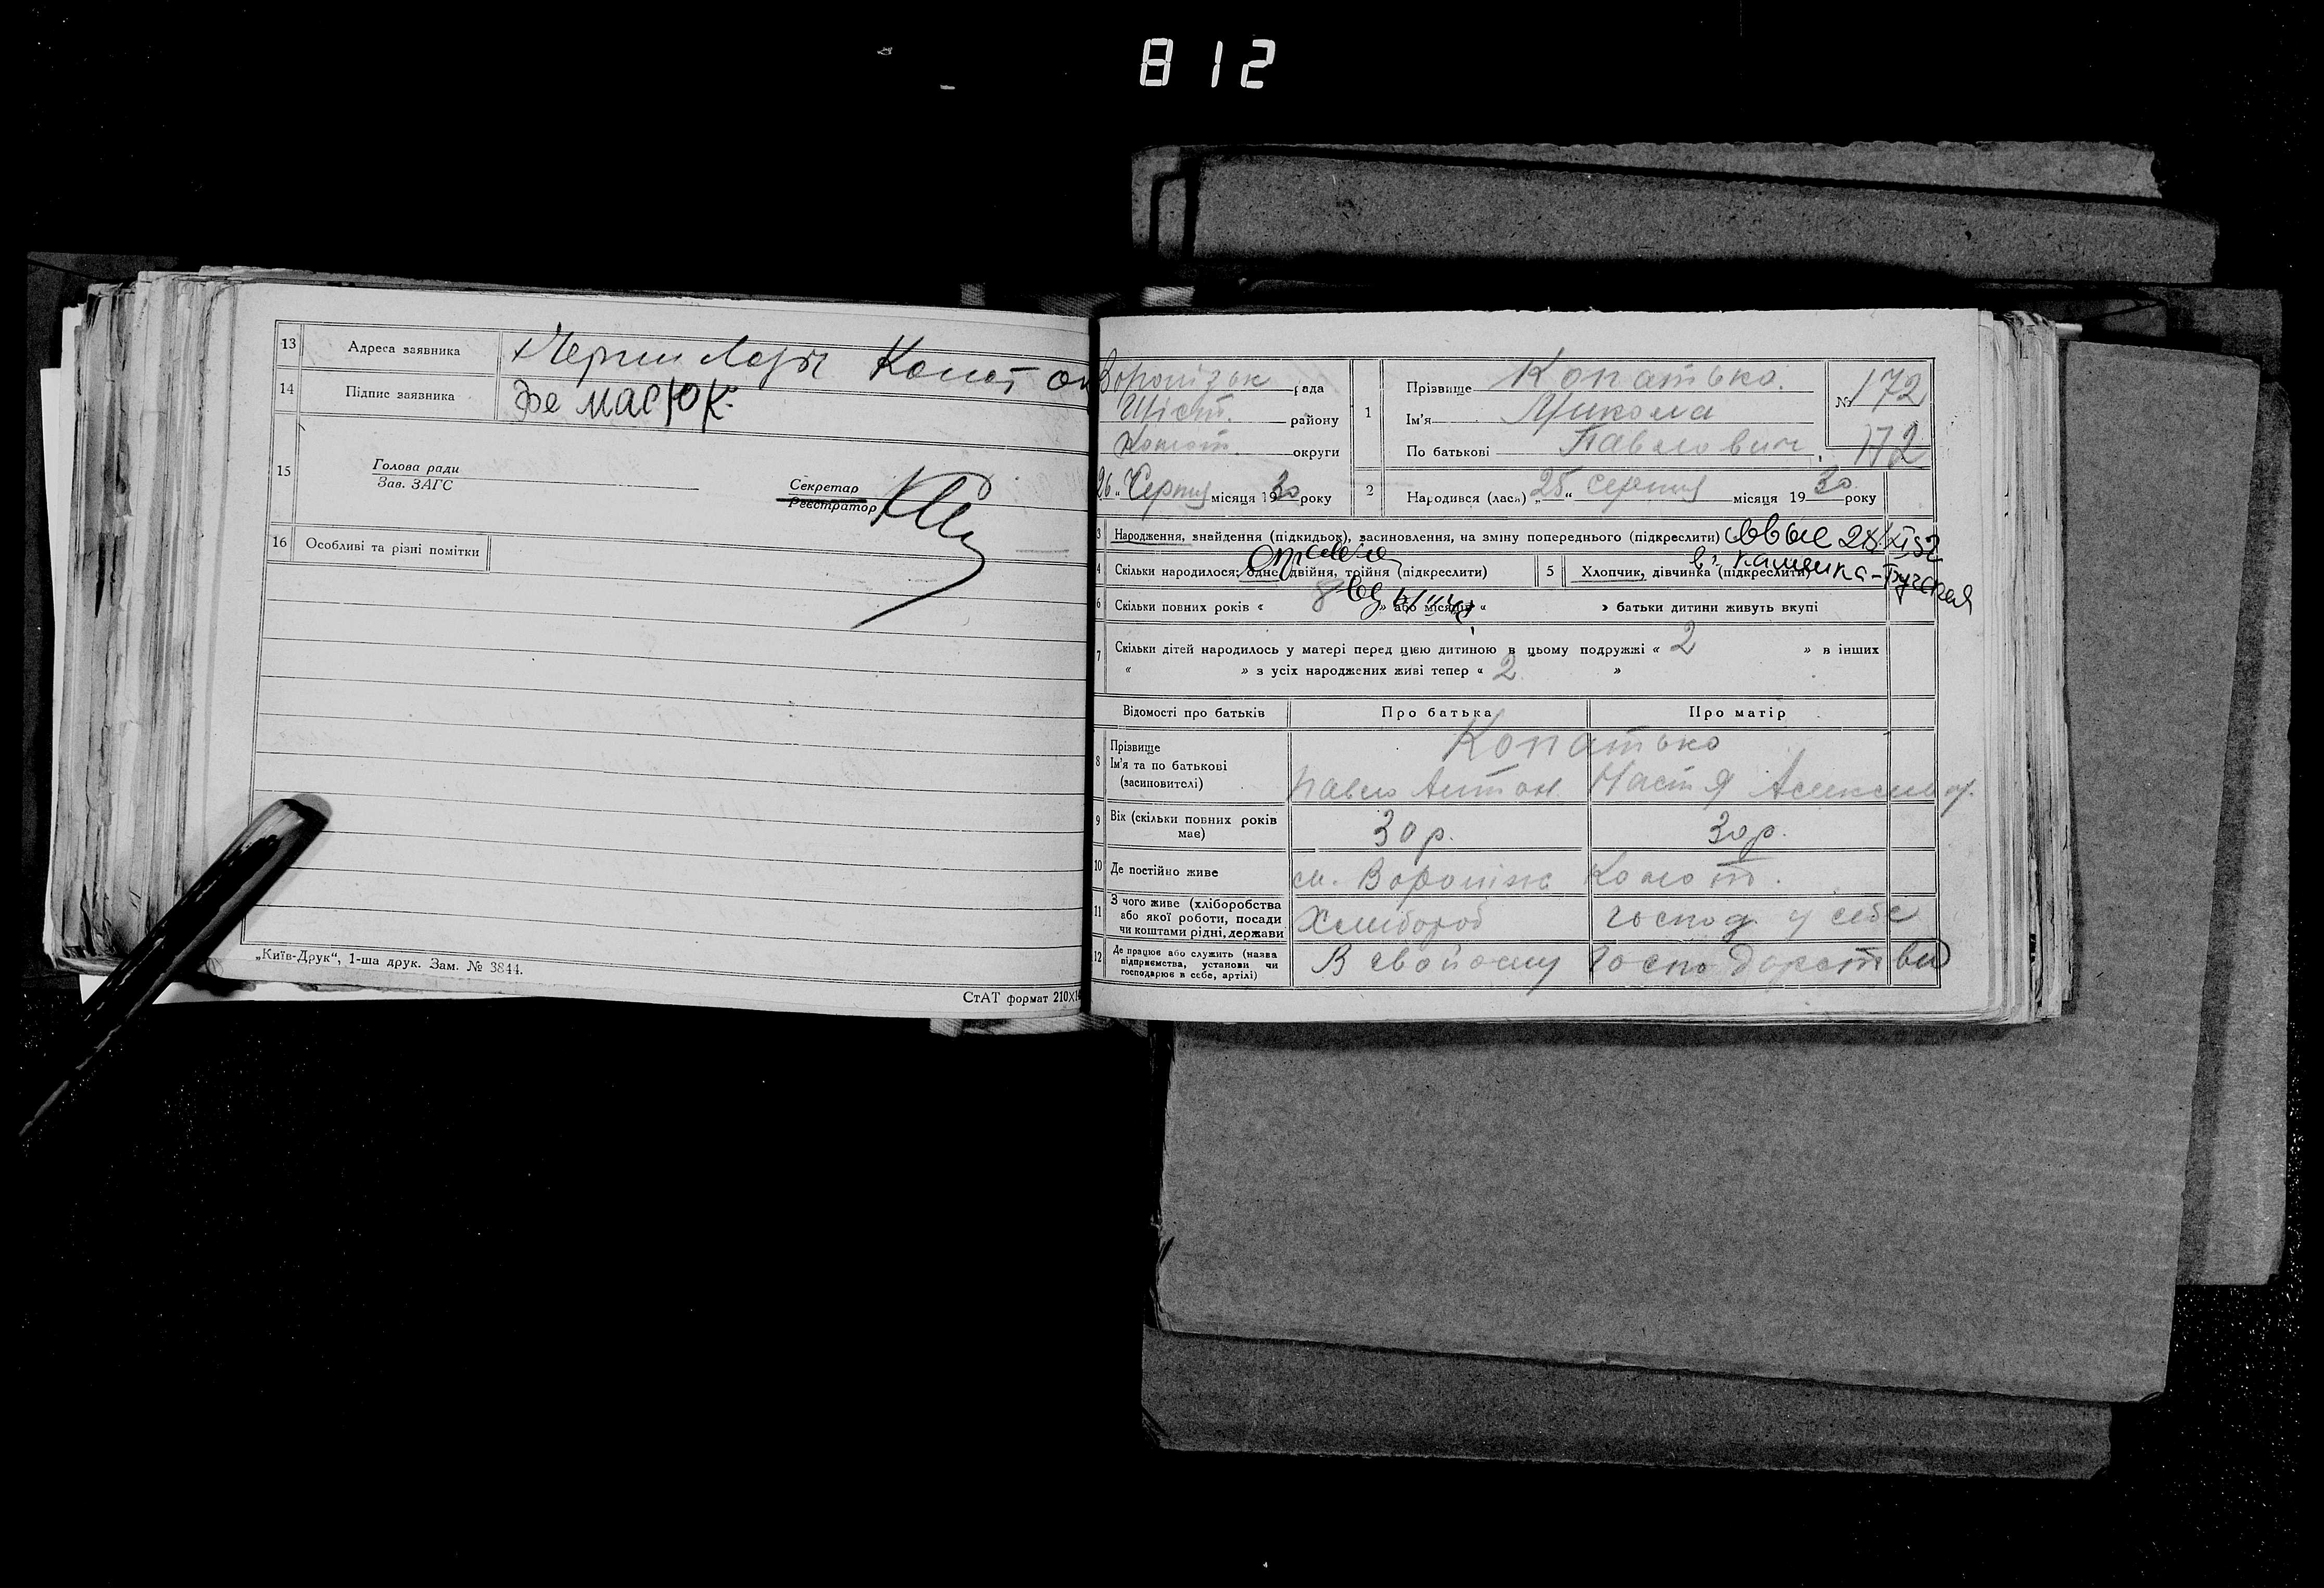 812
13 Адреса заявника
14 Підпис заявника
15 Голова ради
Зав. ЗАГС
Секретар
Реєстратор
16 Особливі та різні помітки
„Київ-Друк“, 1-ша друк. Зам. № 3844.
СтАТ формат 210×14
рада
району
Конот. округи
26 „Серпня місяця 1930 року
1 Прізвище Копатько.
Ім'я Микола
По батькові Павлович.
№ 172
172
2 Народився (лась) „25“ серпня місяця 1930 року
3 Народження, знайдення (підкидьок), засиновлення, на зміну попереднього (підкреслити)
4 Скільки народилося: одне, двійня, трійня (підкреслити)
5 Хлопчик, дівчинка (підкреслити)
6 Скільки повних років « 8 » або місяців « » батьки дитини живуть вкупі
7 Скільки дітей народилось у матері перед цією дитиною в цьому подружжі « 2 » в інших
« » з усіх народжених живі тепер « 2 »
Відомості про батьків Про батька Про матір
8 Прізвище
Ім'я та по батькові
(засиновителі)
Копатько
Павло Антон. Настя
9 Вік (скільки повних років має) 30 р. 30 р.
10 Де постійно живе см. Вороніж Конот.
11 З чого живе (хліборобства або якої роботи, посади чи коштами рідні, держави Хлибороб господ. у себе
12 Де працює або служить (назва підприємства, установи чи господарює в себе, артілі) В свойому господарстви